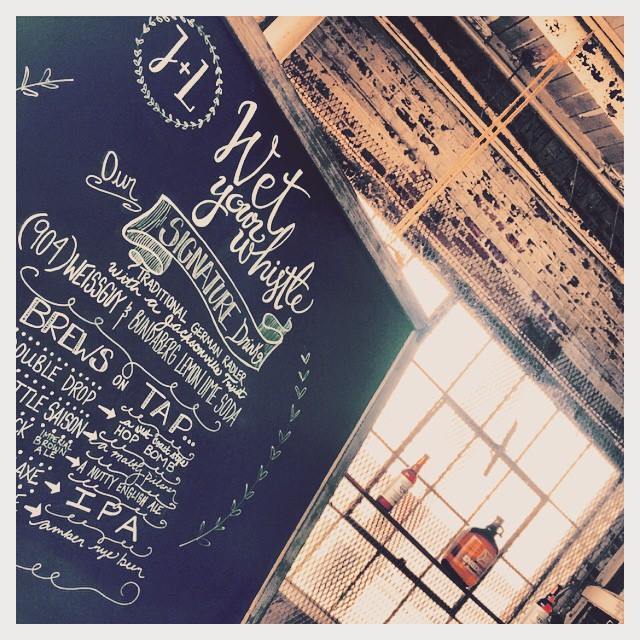 J+L
Wet
your whistle
Our
SIGNATURE Drink
TRADITIONAL GERMAN RADLER
with a Jacksonville twist
(904) WEISSGUY & BUNDABERG LEMON LIME SODA
BREWS on TAP...
DOUBLE DROP →
HOP BOMB
SAISON →
a malty pilsner
IMPERIAL BROWN ALE → A NUTTY ENGLISH ALE
→ IPA
→ amber rye beer